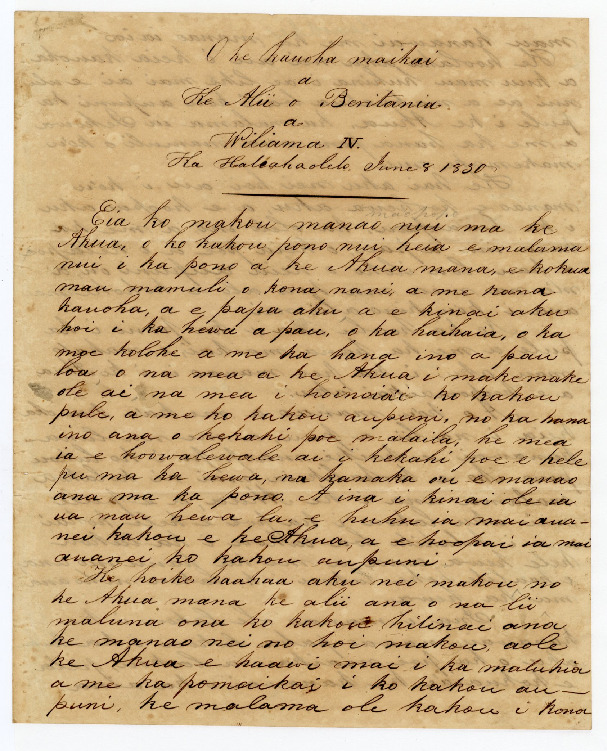 O ke kauoha maikai
a
Ke Alii o Beritania.
a
Wiliama IV.
Ka Haleahaolelo June 8 1830
Eia ko makou manao nui ma ke
Akua, o ko kakou pono nui, keia e malama
nui i ka pono a ke Akua mana, e kokua
mau mamuli o kona nani, a me kana
kauoha, a e papa aku a e kinai aku
hoi i ka hewa a pau, o ka haikaia, o ka
moe kolohe a me ka hana ino a pau
loa o na mea a ke Akua i makemake
ole ai na mea i hoinoiai ko kakou
pule, a me ko kakou aupuni, no ka hana
ino ana o kekahi poe malaila, he mea
ia e hoowalewale ai i kekahi poe e hele
pu ma ka hewa, na kanaka ou e manao
ana ma ka pono. A ina i kinai ole ia
ua mau hewa la, e huhu ia mai aua-
nei kakou e ke Akua, a e hoopai ia mai
auanei ko kakou aupuni.
Ke hoike haahaa aku nei makou no
ke Akua mana ke alii ana o na lii
maluna ona ko kakou hilinai ana
ke manao nei no hoi makou, aole
ke Akua e haawi mai i ka maluhia
a me ka pomaikai i ko kakou au-
puni, ke malama ole kakou i kona